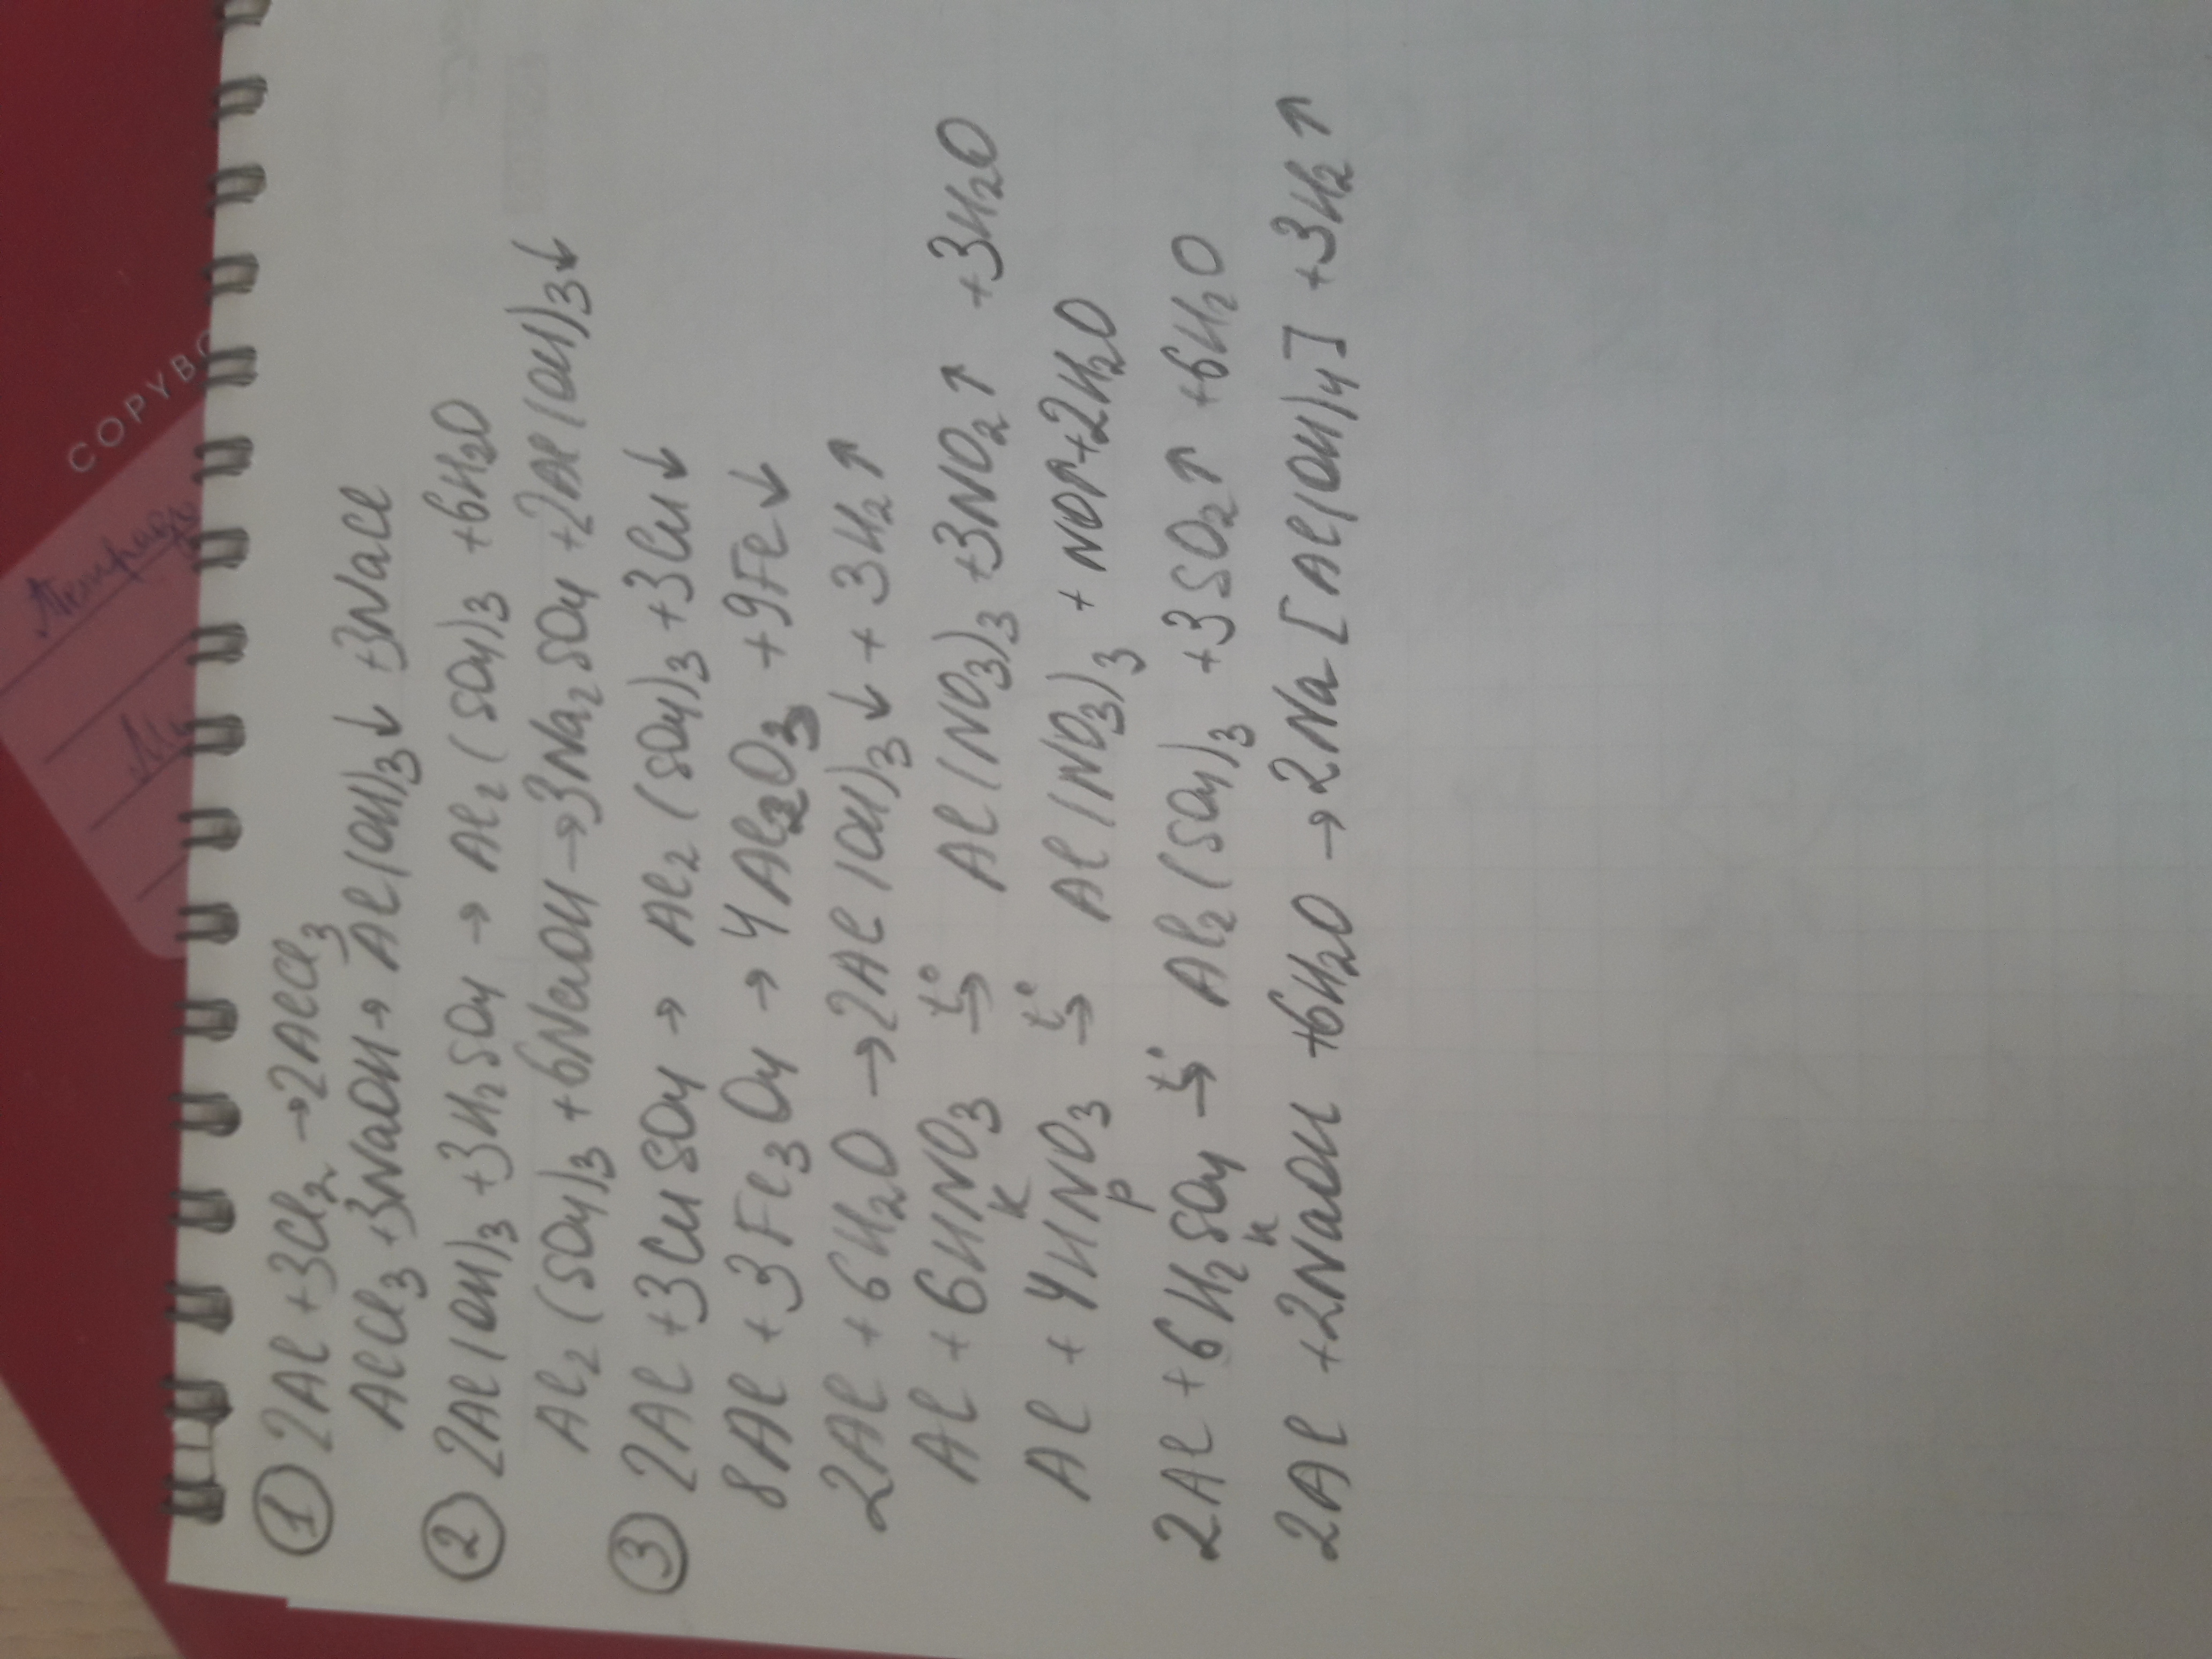 COPYBO
① 2Al + 3Cl₂ → 2AlCl₃
AlCl₃ + 3NaOH → Al(OH)₃↓ + 3NaCl
② 2Al(OH)₃ + 3H₂SO₄ → Al₂(SO₄)₃ + 6H₂O
Al₂(SO₄)₃ + 6NaOH → 3Na₂SO₄ + 2Al(OH)₃↓
③ 2Al + 3CuSO₄ → Al₂(SO₄)₃ + 3Cu↓
8Al + 3Fe₃O₄ → 4Al₂O₃ + 9Fe↓
2Al + 6H₂O → 2Al(OH)₃↓ + 3H₂↑
Al + 6HNO₃ к t°→ Al(NO₃)₃ + 3NO₂↑ + 3H₂O
Al + 4HNO₃ р t°→ Al(NO₃)₃ + NO↑ + 2H₂O
2Al + 6H₂SO₄ к t°→ Al₂(SO₄)₃ + 3SO₂↑ + 6H₂O
2Al + 2NaOH + 6H₂O → 2Na[Al(OH)₄] + 3H₂↑